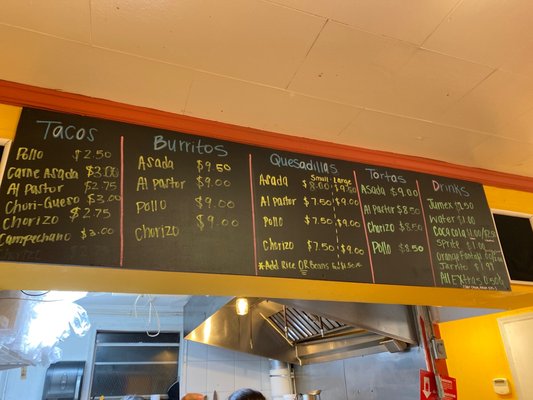 Tacos
Pollo $2.50
Carne Asada $3.00
Al Pastor $2.75
Chori-Queso $3.00
Chorizo $2.75
Campechano $3.00
Burritos
Asada $9.50
Al Pastor $9.00
Pollo $9.00
Chorizo $9.00
Quesadillas
Small Large
Asada $8.00 $9.50
Al Pastor $7.50 $9.00
Pollo $7.50 $9.00
Chorizo $7.50 $9.00
*Add Rice OR Beans $1.50
Tortas
Asada $9.00
Al Pastor $8.50
Chorizo $8.50
Pollo $8.50
Drinks
Jumex $1.50
Water $1.00
Coca cola
Sprite
Orange Fanta
Jarrito $1.97
All Extras 0.50¢